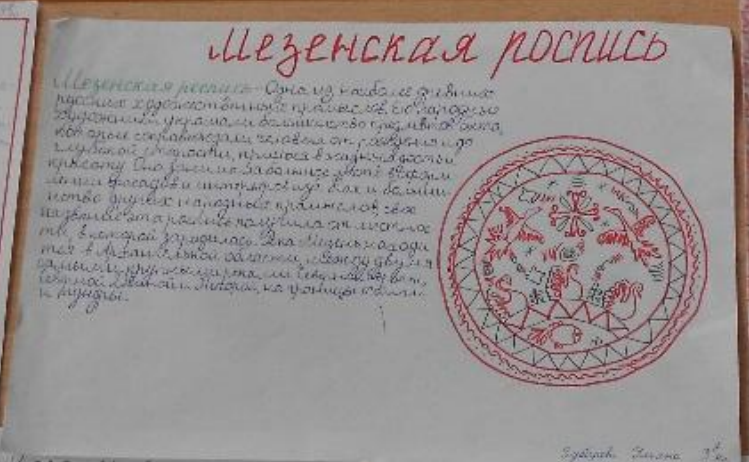 Мезенская роспись
Мезенская роспись - Одна из наиболее древних
русских художественных промыслов. Ею народные
художники украшали большинство предметов быта,
которые сопровождали человека от рождения и до
глубокой старости, принося в жизнь радость и
красоту. Она занимала большое место в оформ
лении фасадов и интерьеров изб. Как и больши
нство других народных промыслов, свое
название эта роспись получила от местнос
ти, в которой зародилась. Река Мезень находи
тся в Архангельской области, между двумя
самыми крупными реками Северной
Северной Двиной и Печорой, на границы тайги
и тундры.